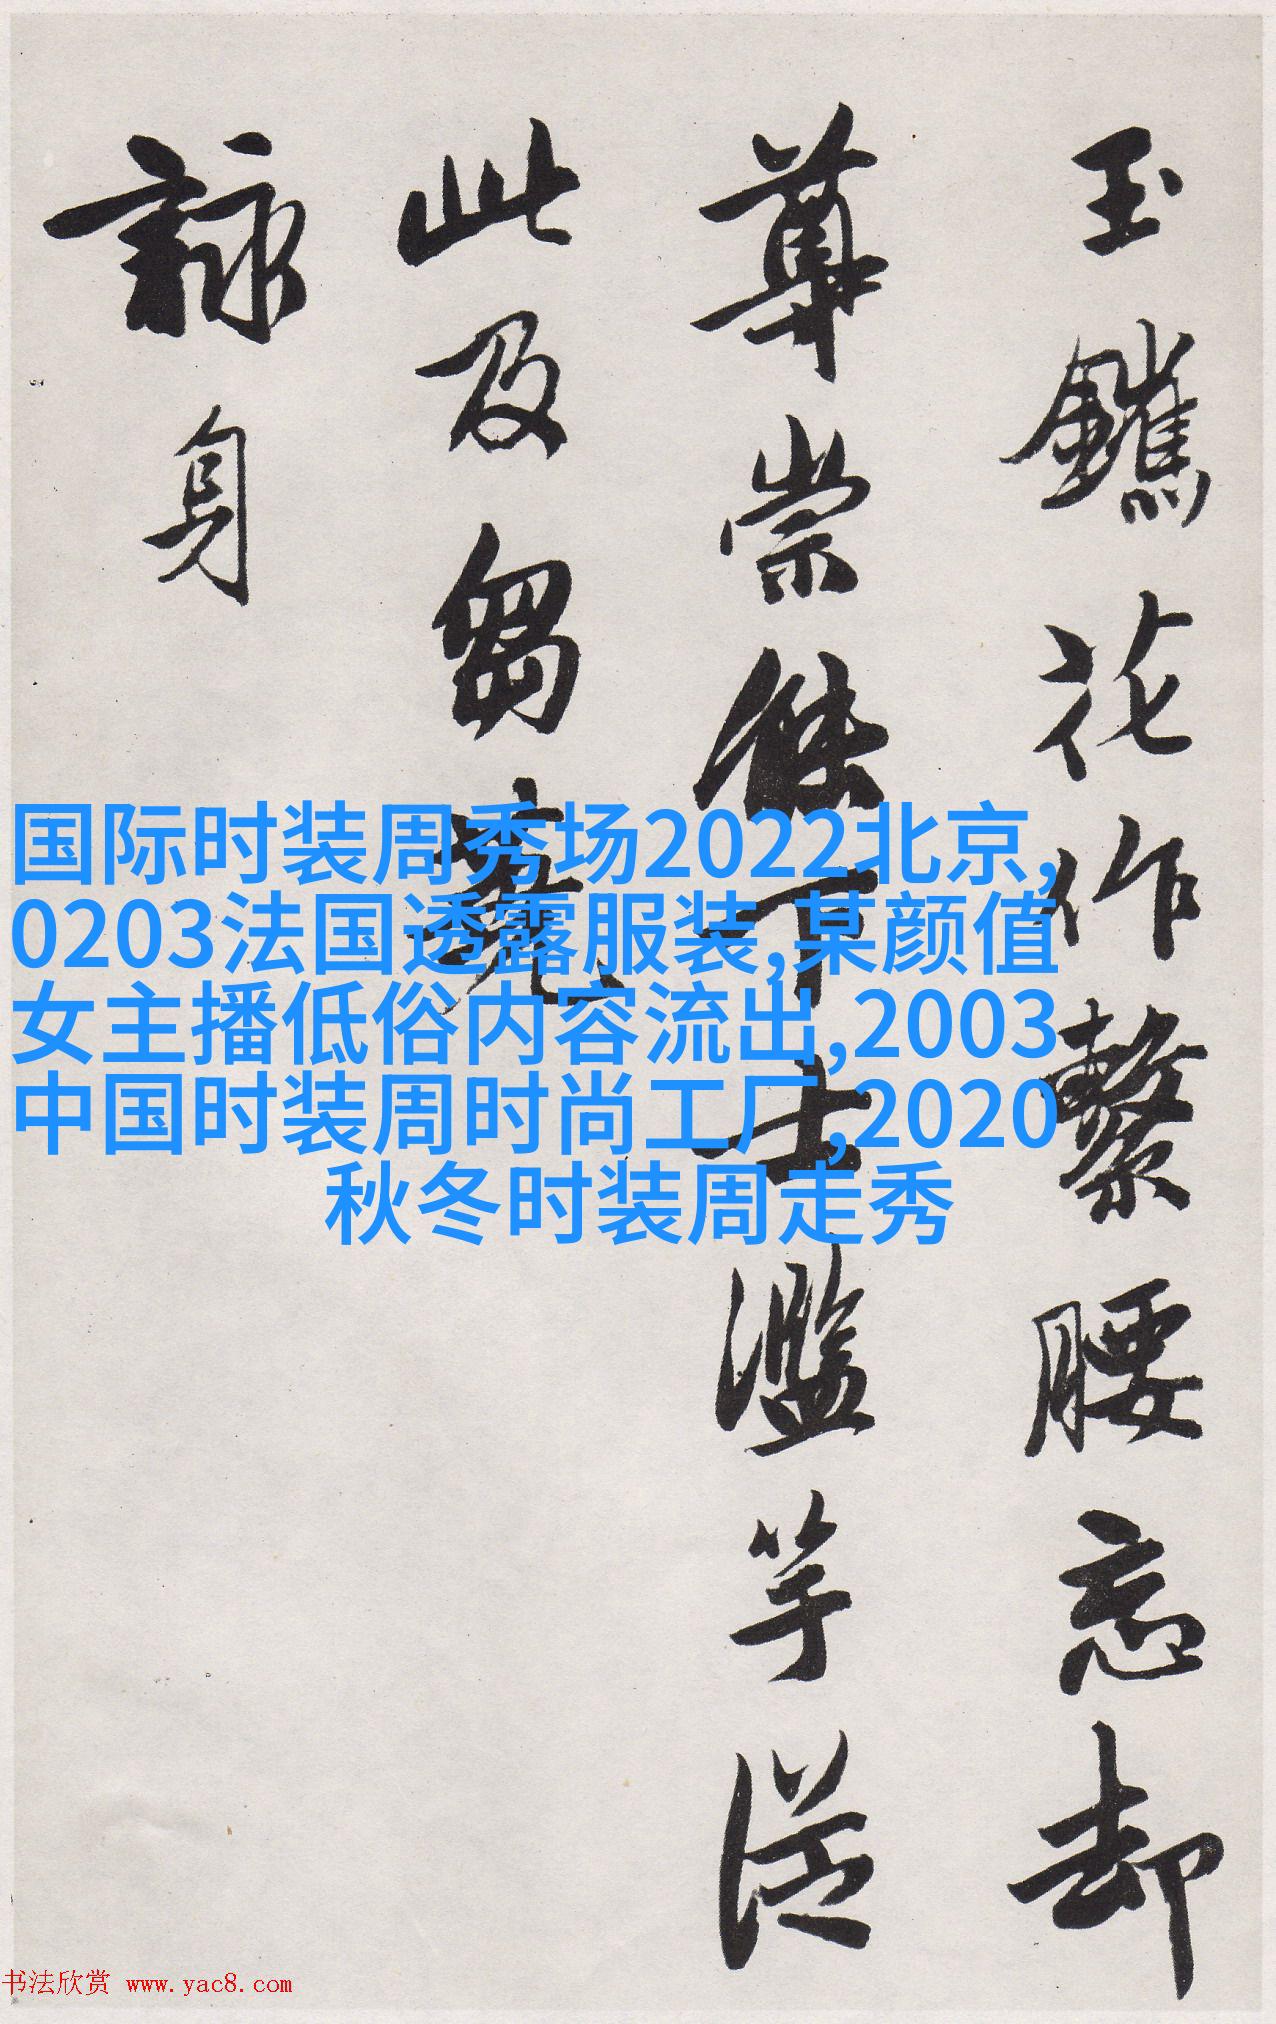 玉鑵花作繫腰忘却
尊崇餘下士濫竽從
此及芻蕘
詠身
国际时装周秀场2022北京,
0203法国透露服装,某颜值
女主播低俗内容流出,2003
中国时装周时尚工厂,2020
秋冬时装周走秀
书法欣赏 www.yac8.com